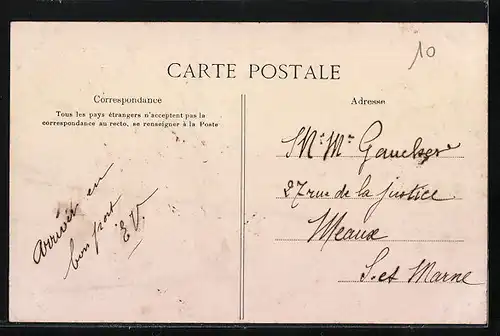 10
CARTE POSTALE
Correspondance
Tous les pays étrangers n'acceptent pas la
correspondance au recto, se renseigner à la Poste
Arrivée en
bon port
EV.
Adresse
27 rue de la Justice
Meaux
S. et Marne